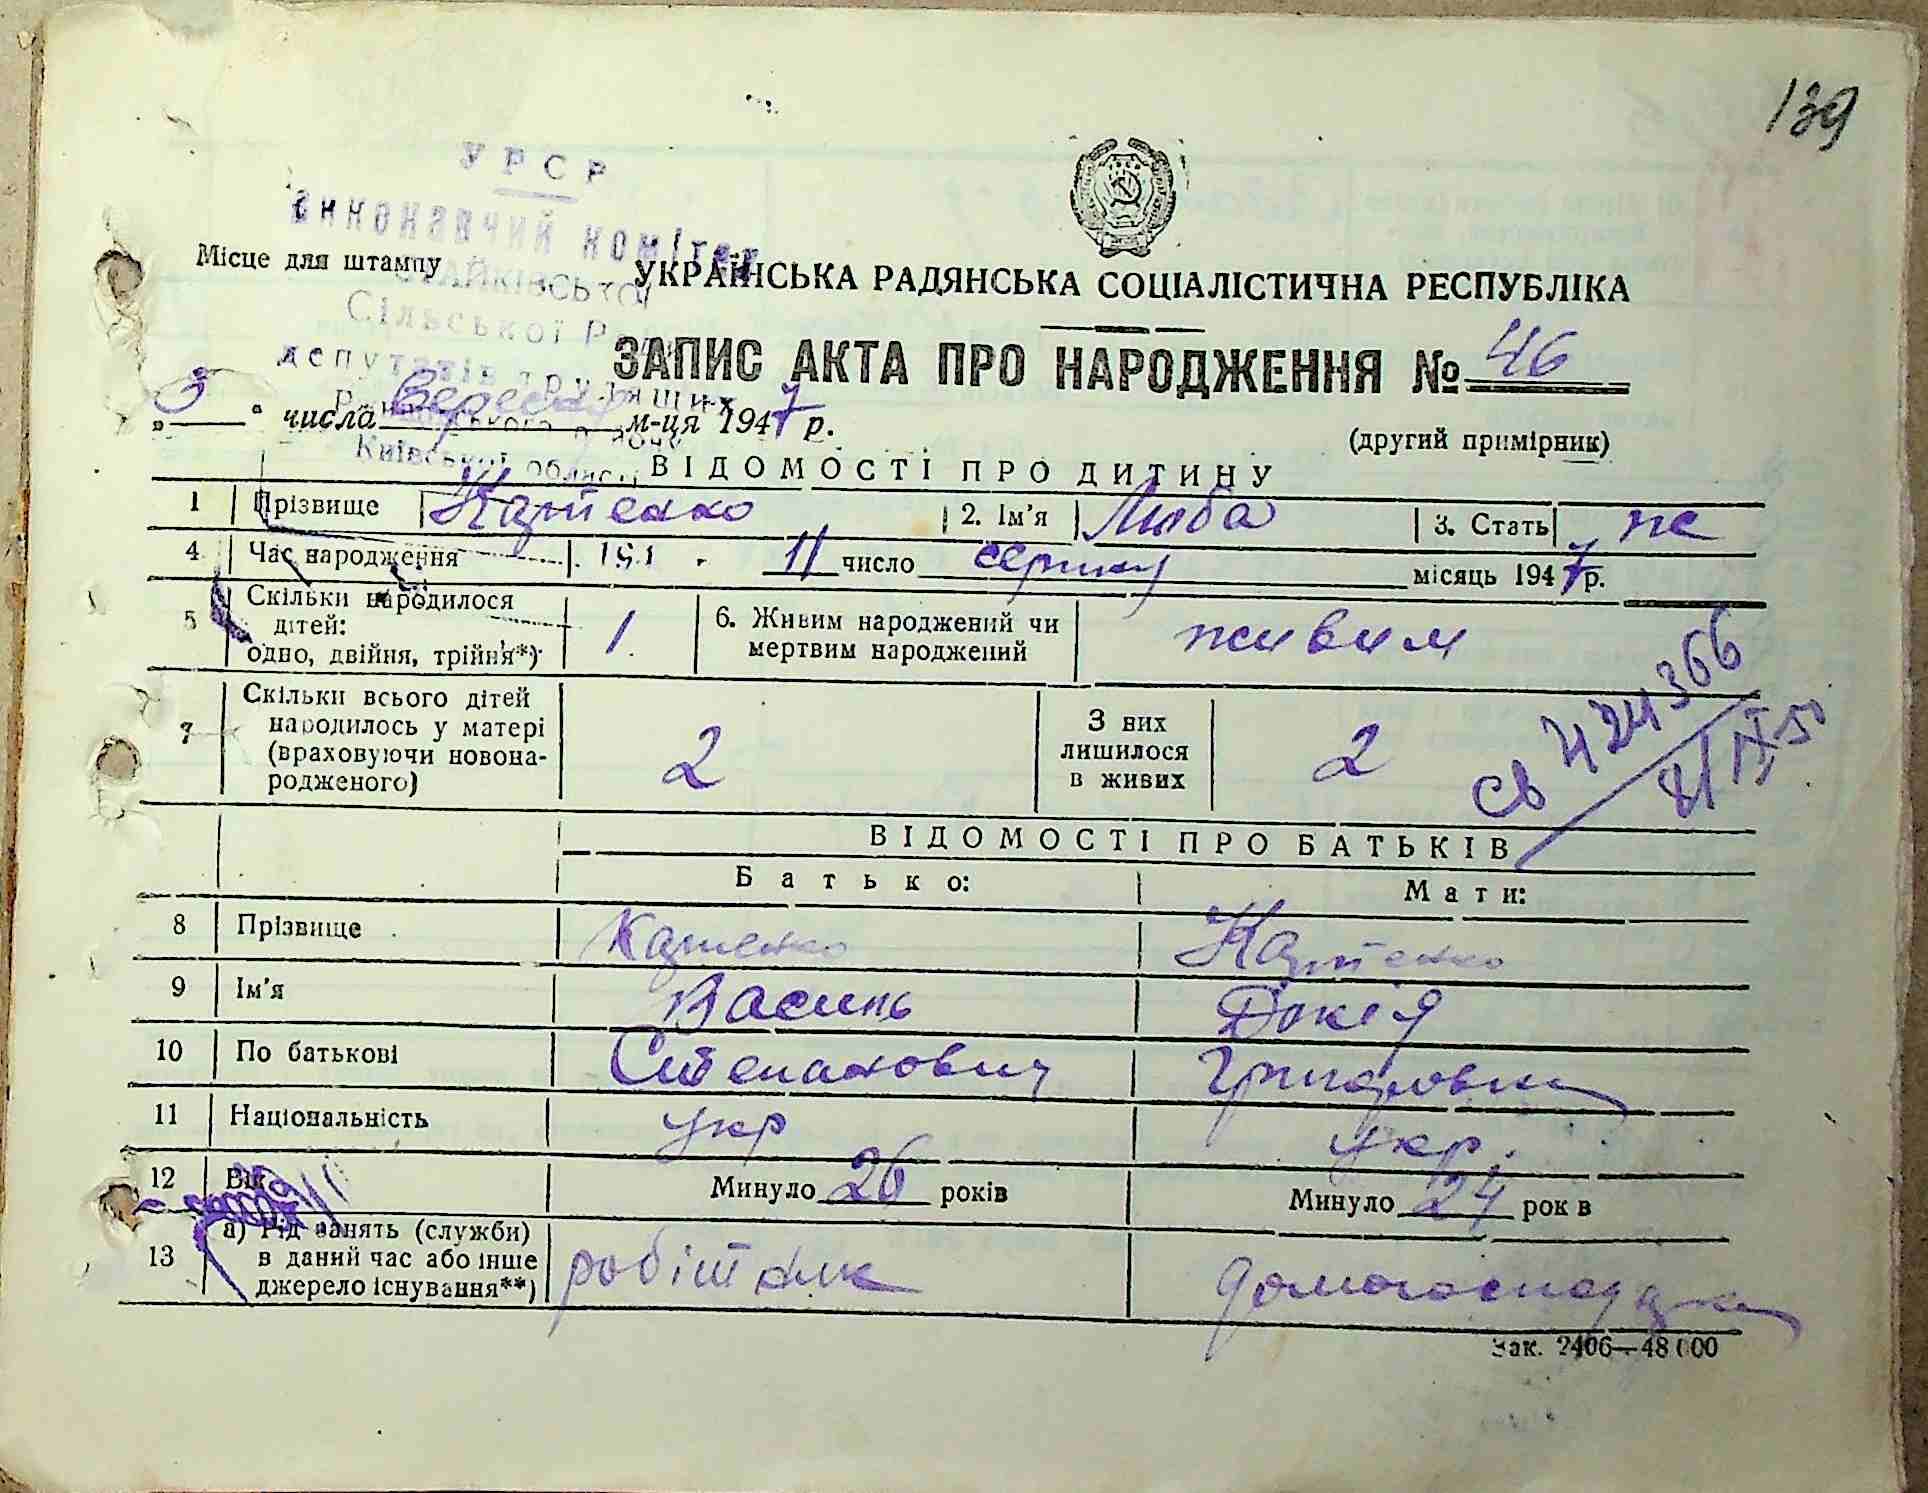 139
УРСР
Виконавчий комітет
СТАЙКІВСЬКОЇ
Сільської Ради
депутатів трудящих
району
Київської області
Місце для штампу
УКРАЇНСЬКА РАДЯНСЬКА СОЦІАЛІСТИЧНА РЕСПУБЛІКА
ЗАПИС АКТА ПРО НАРОДЖЕННЯ № 46
„3" числа Вересня м-ця 1947 р.
(другий примірник)
ВІДОМОСТІ ПРО ДИТИНУ
1 Прізвище 2. Ім'я Люба 3. Стать ж
4 Час народження 11 число серпня місяць 1947 р.
5 Скільки народилося дітей: одно, двійня, трійня*) 1. 6. Живим народжений чи мертвим народжений живим
7 Скільки всього дітей народилось у матері (враховуючи новонародженого) 2 З них лишилося в живих 2
св 424366
ВІДОМОСТІ ПРО БАТЬКІВ
Батько: Мати:
8 Прізвище
9 Ім'я Василь Докія
10 По батькові Степанович Григоровна
11 Національність укр укр.
12 Вік Минуло 26 років Минуло 24 років
13 а) Рід занять (служби) в даний час або інше джерело існування**) робітник домогосподарка
Зак. 2406—48000